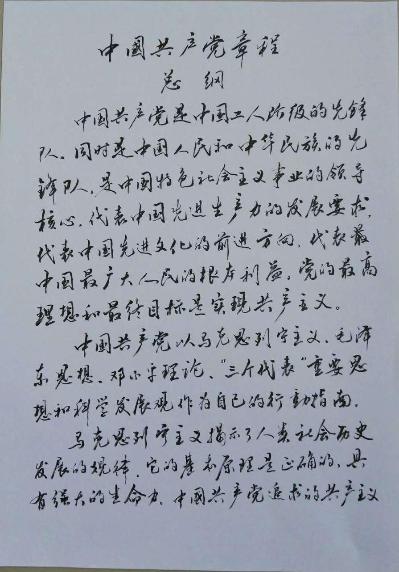 中國共产党章程
总纲
中国共产党是中国工人阶级的先锋
队，同时是中国人民和中华民族的先
锋队，是中国特色社会主义事业的领导
核心，代表中国先进生产力的发展要求，
代表中国先进文化的前进方向，代表最
中国最广大人民的根本利益。党的最高
理想和最终目标是实现共产主义。
中國共产党以马克思列宁主义、毛泽
东思想、邓小平理论、“三个代表”重要思
想和科学发展观作为自己的行动指南。
马克思列宁主义揭示了人类社会历史
发展的规律，它的基本原理是正确的，具
有强大的生命力。中國共产党追求的共产主义